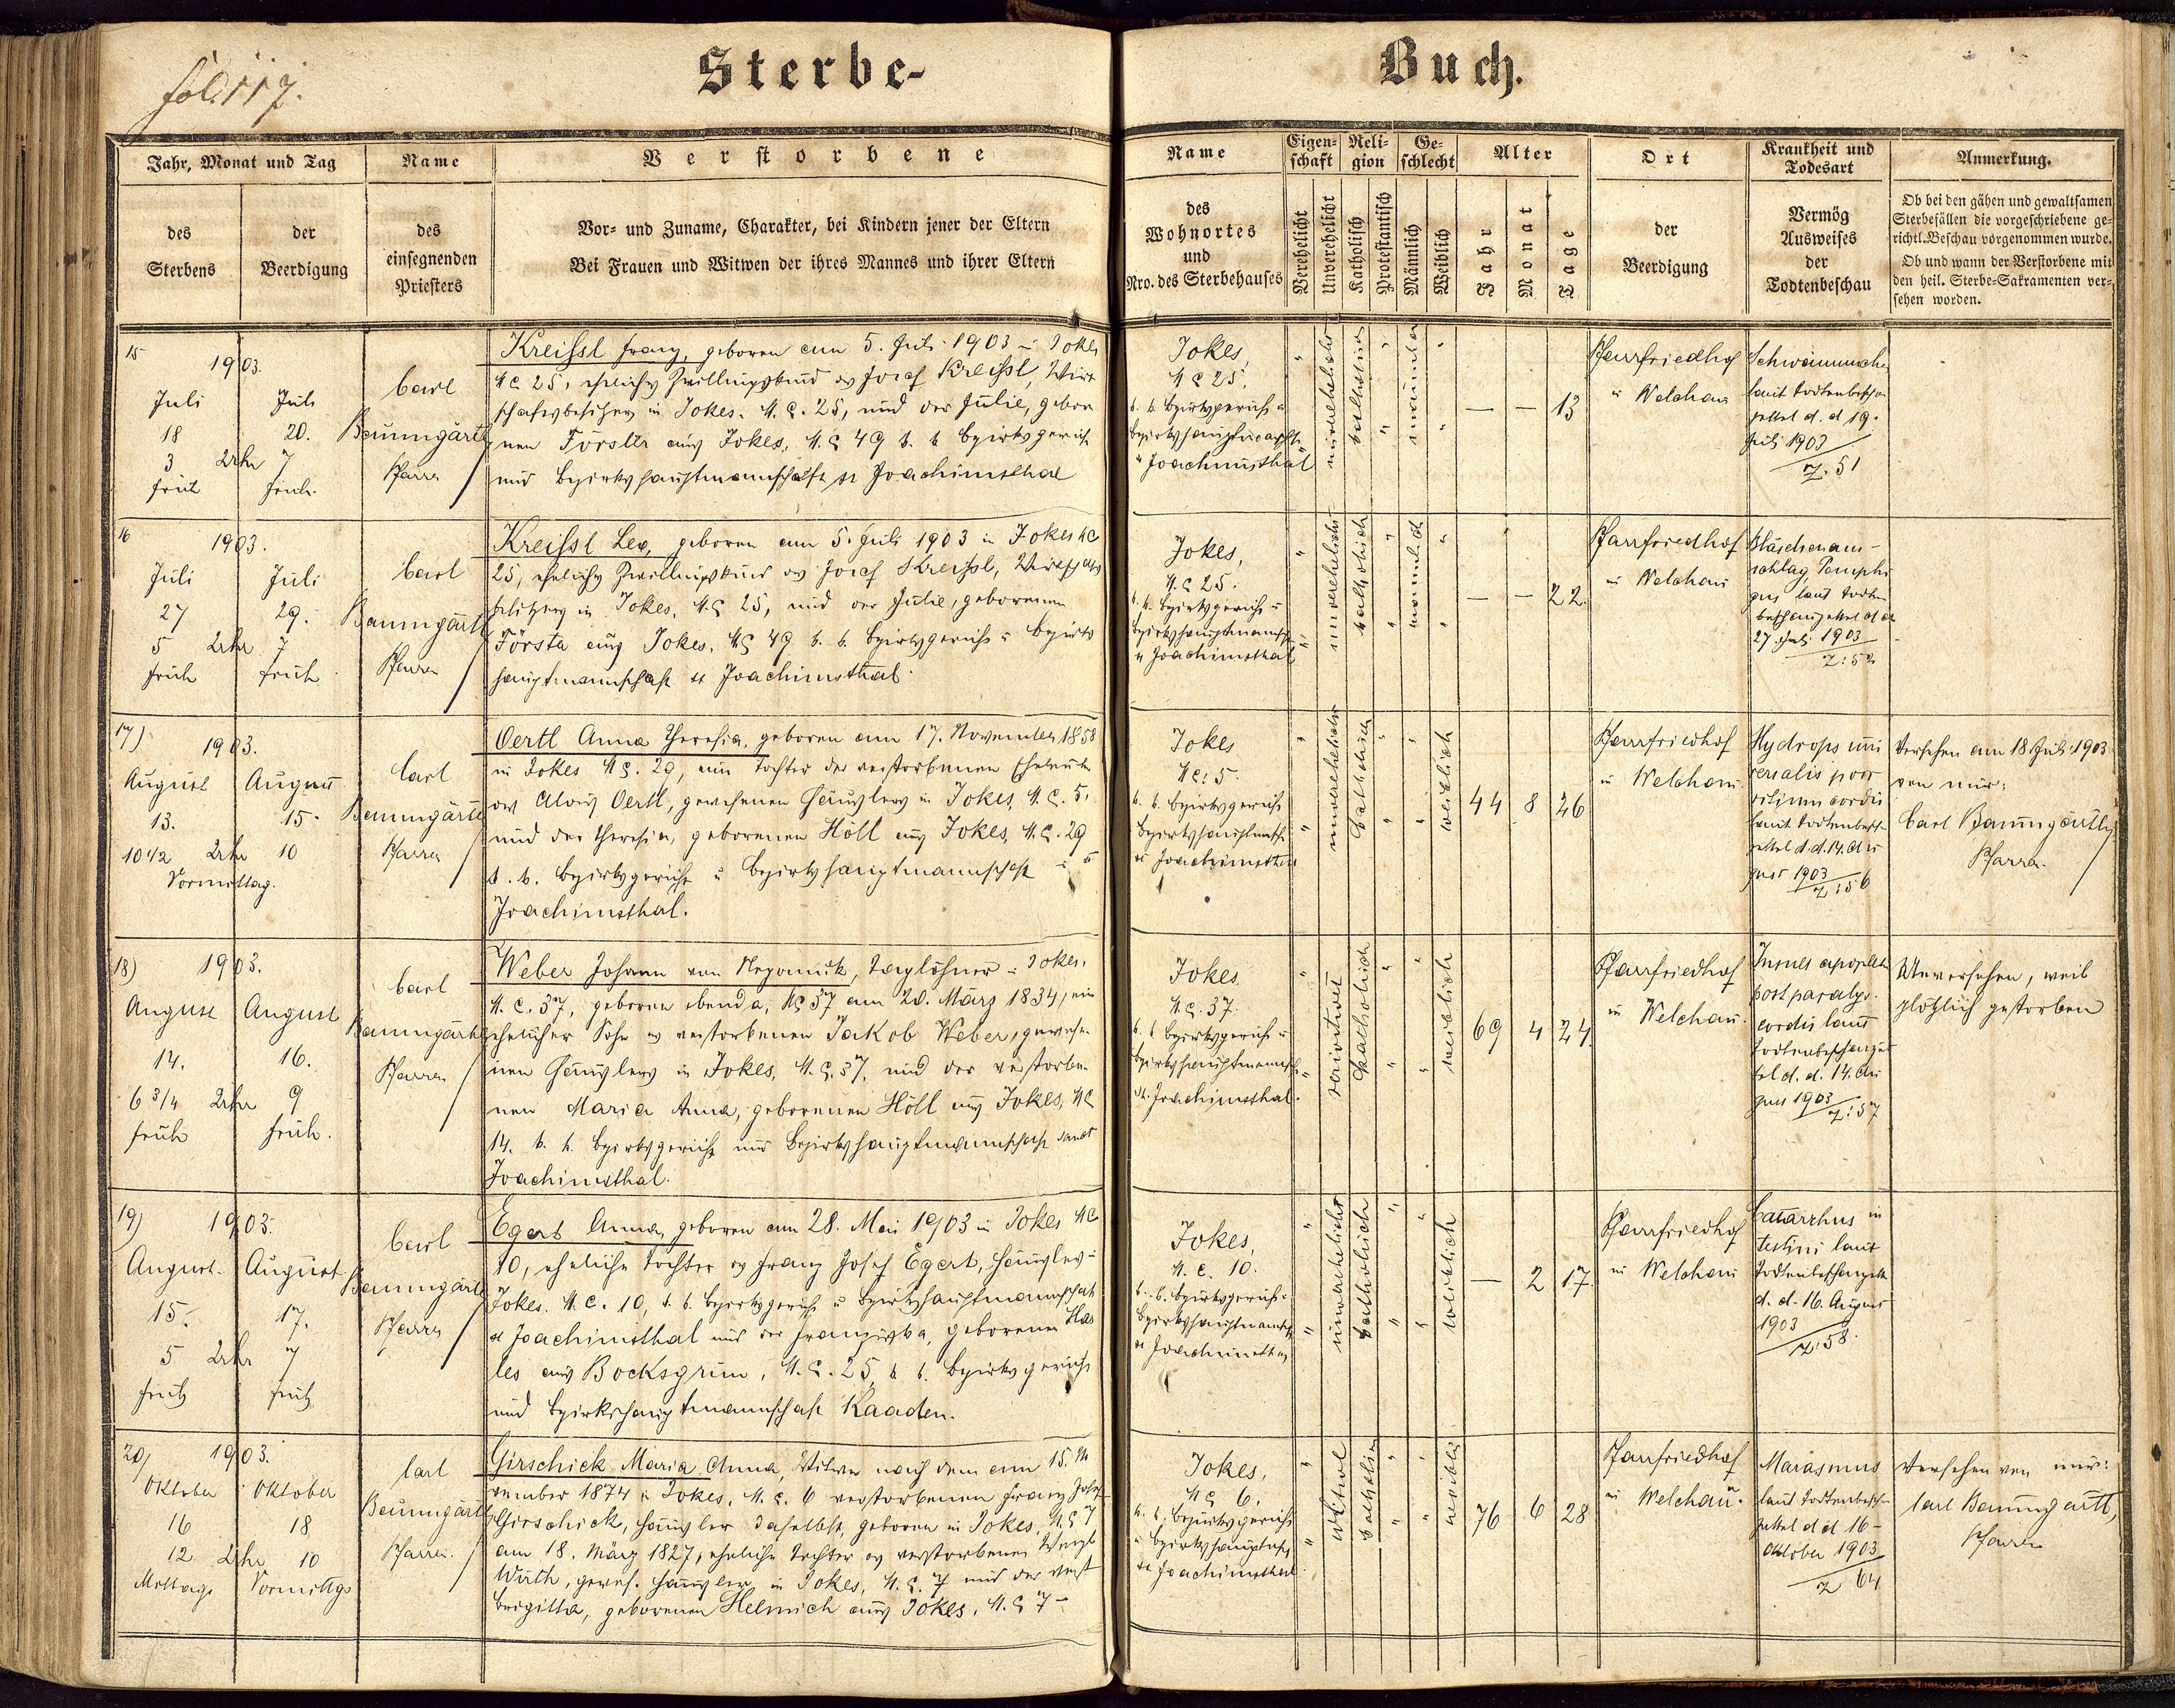 fol. 117.
Sterbe-
Buch.
Jahr, Monat und Tag
des Sterbens
der Beerdigung
Name
des
einsegnenden
Priesters
Verstorbene
Vor- und Zuname, Charakter, bei Kindern jener der Eltern
Bei Frauen und Witwen der ihres Mannes und ihrer Eltern
Name
des
Wohnortes
und
Nro. des Sterbehauses
Eigen-
schaft
Verehelicht
Unverehelicht
Reli-
gion
Katholisch
Protestantisch
Ge-
schlecht
Männlich
Weiblich
Alter
Jahr
Monat
Tage
Ort
der
Beerdigung
Krankheit und
Todesart
Vermög
Ausweises
der
Todtenbeschau
Anmerkung.
Ob bei den gähen und gewaltsamen
Sterbefällen die vorgeschriebene ge-
richtl. Beschau vorgenommen wurde.
Ob und wann der Verstorbene mit
den heil. Sterbe-Sakramenten ver-
sehen worden.
15
1903.
Juli
18
3 Uhr
früh
Juli
20.
7
früh.
Carl
Baumgärtl
Pfarrer
Kreissl Franz, geboren am 5. Juli 1903 in Jokes
NC 25, eheliches Zwillingskind des Josef Kreissl, Wirt-
schaftsbesitzers in Jokes, N.C. 25, und der Julie, gebore-
nen Förster aus Jokes, N.C. 49 k. k. Bezirksgericht
und Bezirkshauptmannschaft St Joachimsthal
Jokes,
NC 25.
k. k. Bezirksgericht u
Joachimsthal
unverehelicht
katholisch
männlich
— — 13
Pfarrfriedhof
in Welchau
laut Todtenbeschau
zettel d. d 19.
Juli 1903
Z. 51
16
1903.
Juli
27
5 Uhr
früh
Juli
29.
7
früh
Carl
Baumgärtl
Pfarrer
Kreissl Leo, geboren am 5. Juli 1903 in Jokes NC
25, eheliches Zwillingskind des Josef Kreissl, Wirtschafts
besitzers in Jokes, N.C. 25, und der Julie, geborenen
Förster aus Jokes, NC 49 k. k. Bezirksgericht u Bezirks
hauptmannschaft St Joachimsthal.
Jokes,
N.C 25.
k. k. Bezirksgericht u
Bezirkshauptmannsch
St Joachimsthal
unverehelicht
katholisch
männlich
— — 22.
Pfarrfriedhof
in Welchau
Bläschenaus-
schlag, Pemphi
gus, laut Todten
beschauzettel d d
27 Juli 1903
Z: 52
17)
1903.
August
13.
10 1/2 Uhr
Vormittag.
August
15.
10
Carl
Baumgärtl
Pfarrer
Oertl Anna Theresia, geboren am 17. November 1858
in Jokes NC. 29, eine Tochter der verstorbenen Eheleute
des Alois Oertl, gewesenen Häuslers in Jokes, N.C. 5.
und der Theresia, geborenen Höll aus Jokes, N.C. 29
k. k. Bezirksgericht u Bezirkshauptmannschaft St
Joachimsthal.
Jokes
NC: 5.
k. k. Bezirksgericht
St Joachimsthal
unverehelicht
katholisch
weiblich
44 8 26
Pfarrfriedhof
in Welchau.
Hydrops uni
versalis post
vitium cordis
laut Todtenbesch
zettel d. d. 14. Au
gust 1903
Z: 56
Versehen am 18 Juli 1903
von mir:
Carl Baumgärtl,
Pfarrer.
18)
1903.
August
14.
6 3/4 Uhr
früh
August
16.
9
früh.
Carl
Baumgärtl
Pfarrer
Weber Johann von Nepomuk, Taglöhner in Jokes,
N.C. 37, geboren ebenda, NC 37 am 20. März 1834, ein
ehelicher Sohn des verstorbenen Jakob Weber, gewese-
nen Häuslers in Jokes, N.C. 37, und der verstorbe-
nen Maria Anna, geborenen Höll aus Jokes, NC
14. k. k. Bezirksgericht und Bezirkshauptmannschaft Sanct
Joachimsthal.
Jokes
N.C. 37.
k. k Bezirksgericht u
Bezirkshauptmannsch
St. Joachimsthal.
katholisch
weiblich
69 4 24.
Pfarrfriedhof
in Welchau.
Insult apoplect
post paralys.
cordis laut
Todtenbeschauzet
tel d. d. 14. Au
gust 1903
Z: 57
Unversehen, weil
plötzlich gestorben
19)
1903.
August.
15.
5 Uhr
früh
August
17.
7
früh
Carl
Baumgärtl
Pfarrer
Egert Anna, geboren am 28. Mai 1903 in Jokes NC
10, eheliche Tochter des Franz Josef Egert, Häusler in
Jokes, N.C. 10, k. k. Bezirksgericht u Bezirkshauptmannschaft
St Joachimsthal und der Franziska, geborenen Has
les aus Bocksgrün, N.C. 25, k k. Bezirksgericht
und Bezirkshauptmannschaft Kaaden.
Jokes,
N.C. 10.
k. k. Bezirksgericht u
Bezirkshauptmannsch
St Joachimsthal
unverehelicht
katholisch
weiblich
— 2 17.
Pfarrfriedhof
in Welchau
Catarrhus in
testini laut
Todtenbeschauzettel
d. d. 16. August
1903
Z: 58.
20)
1903.
Oktober
16
12 Uhr
Mittags
Oktober
18
10
Vormittgs
Carl
Baumgärtl
Pfarrer.
Girschick Maria Anna, Witwe nach dem am 15. No
vember 1874 in Jokes, N.C. 6 verstorbenen Franz Josef
Girschick, Häusler daselbst, geboren in Jokes, N.C 7
am 18. März 1827, eheliche Tochter des verstorbenen Wenzl
Wirth, gewes. Häusler in Jokes, N.C. 7 und der verst
Brigitta, geborenen Helmich aus Jokes, N.C 7-
Jokes,
NC 6.
k. k. Bezirksgericht
St Joachimsthal
Witwe
katholisch
weiblich
76 6 28
Pfarrfriedhof
in Welchau.
Marasmus
laut Todtenbesch
zettel d d 16-
Oktober 1903
Z 64
Versehen von mir:
Carl Baumgärtl,
Pfarrer